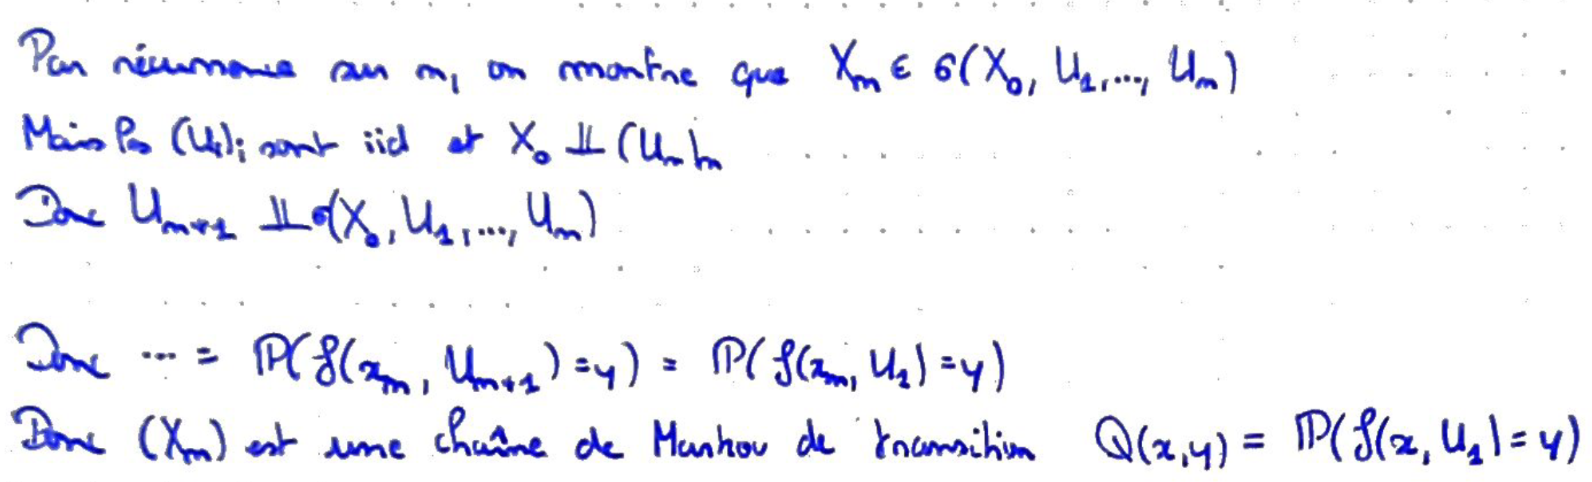 Par récurrence sur n, on montre que Xₙ ∈ σ(X₀, U₁, ..., Uₙ)
Mais les (Uᵢ)ᵢ sont iid et X₀ ⫫ (Uₙ)ₙ
Donc Uₙ₊₁ ⫫ σ(X₀, U₁, ..., Uₙ)
Donc ... = ℙ(f(xₙ, Uₙ₊₁) = y) = ℙ(f(xₙ, U₁) = y)
Donc (Xₙ) est une chaîne de Markov de transition Q(x,y) = ℙ(f(x, U₁) = y)